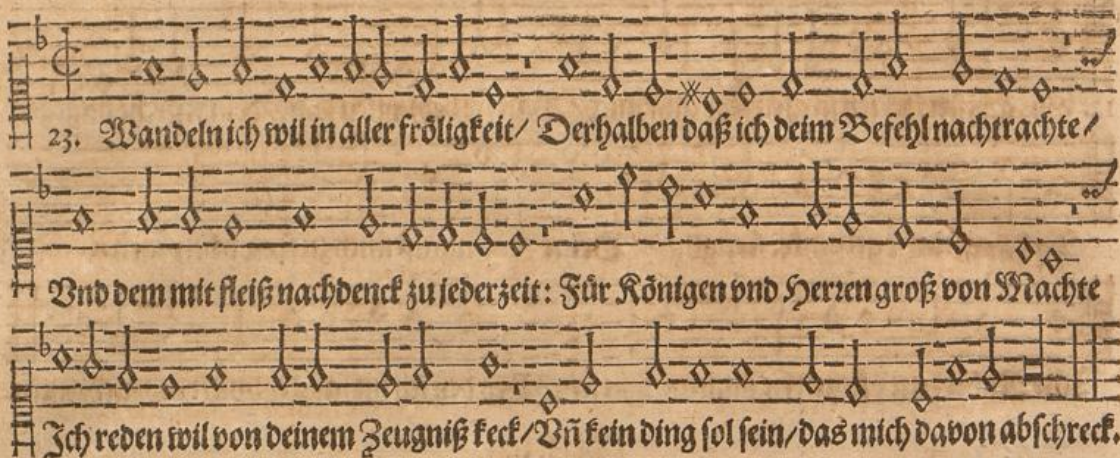 23. Wandeln ich wil in aller fröligkeit/ Derhalben daß ich deim Befehl nachtrachte/
Vnd dem mit fleiß nachdenck zu jederzeit: Für Königen vnd Herren groß von Machte
Ich reden wil von deinem Zeugniß keck/ Vñ kein ding sol sein/ das mich davon abschreck.